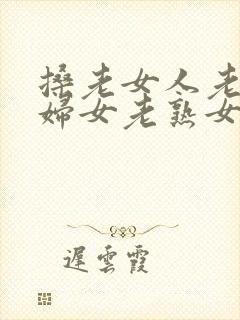 搡老女人老
妇女老熟女
遲雲霞